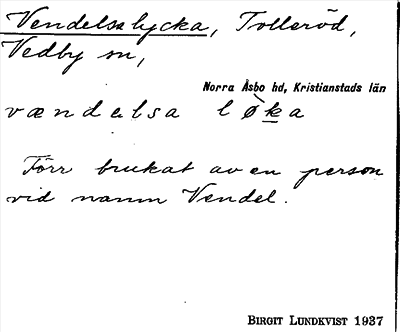 Vendelsalycka, Tolleröd,
Vedby sn,
Norra Åsbo hd, Kristianstads län
vændəlsa lø̀ka
Förr brukat av en person
vid namn Vendel.
BIRGIT LUNDKVIST 1937